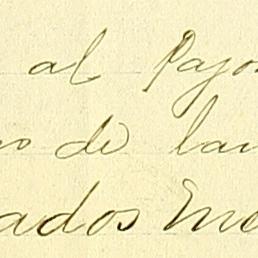 al Pajo
o de lan
ados Me